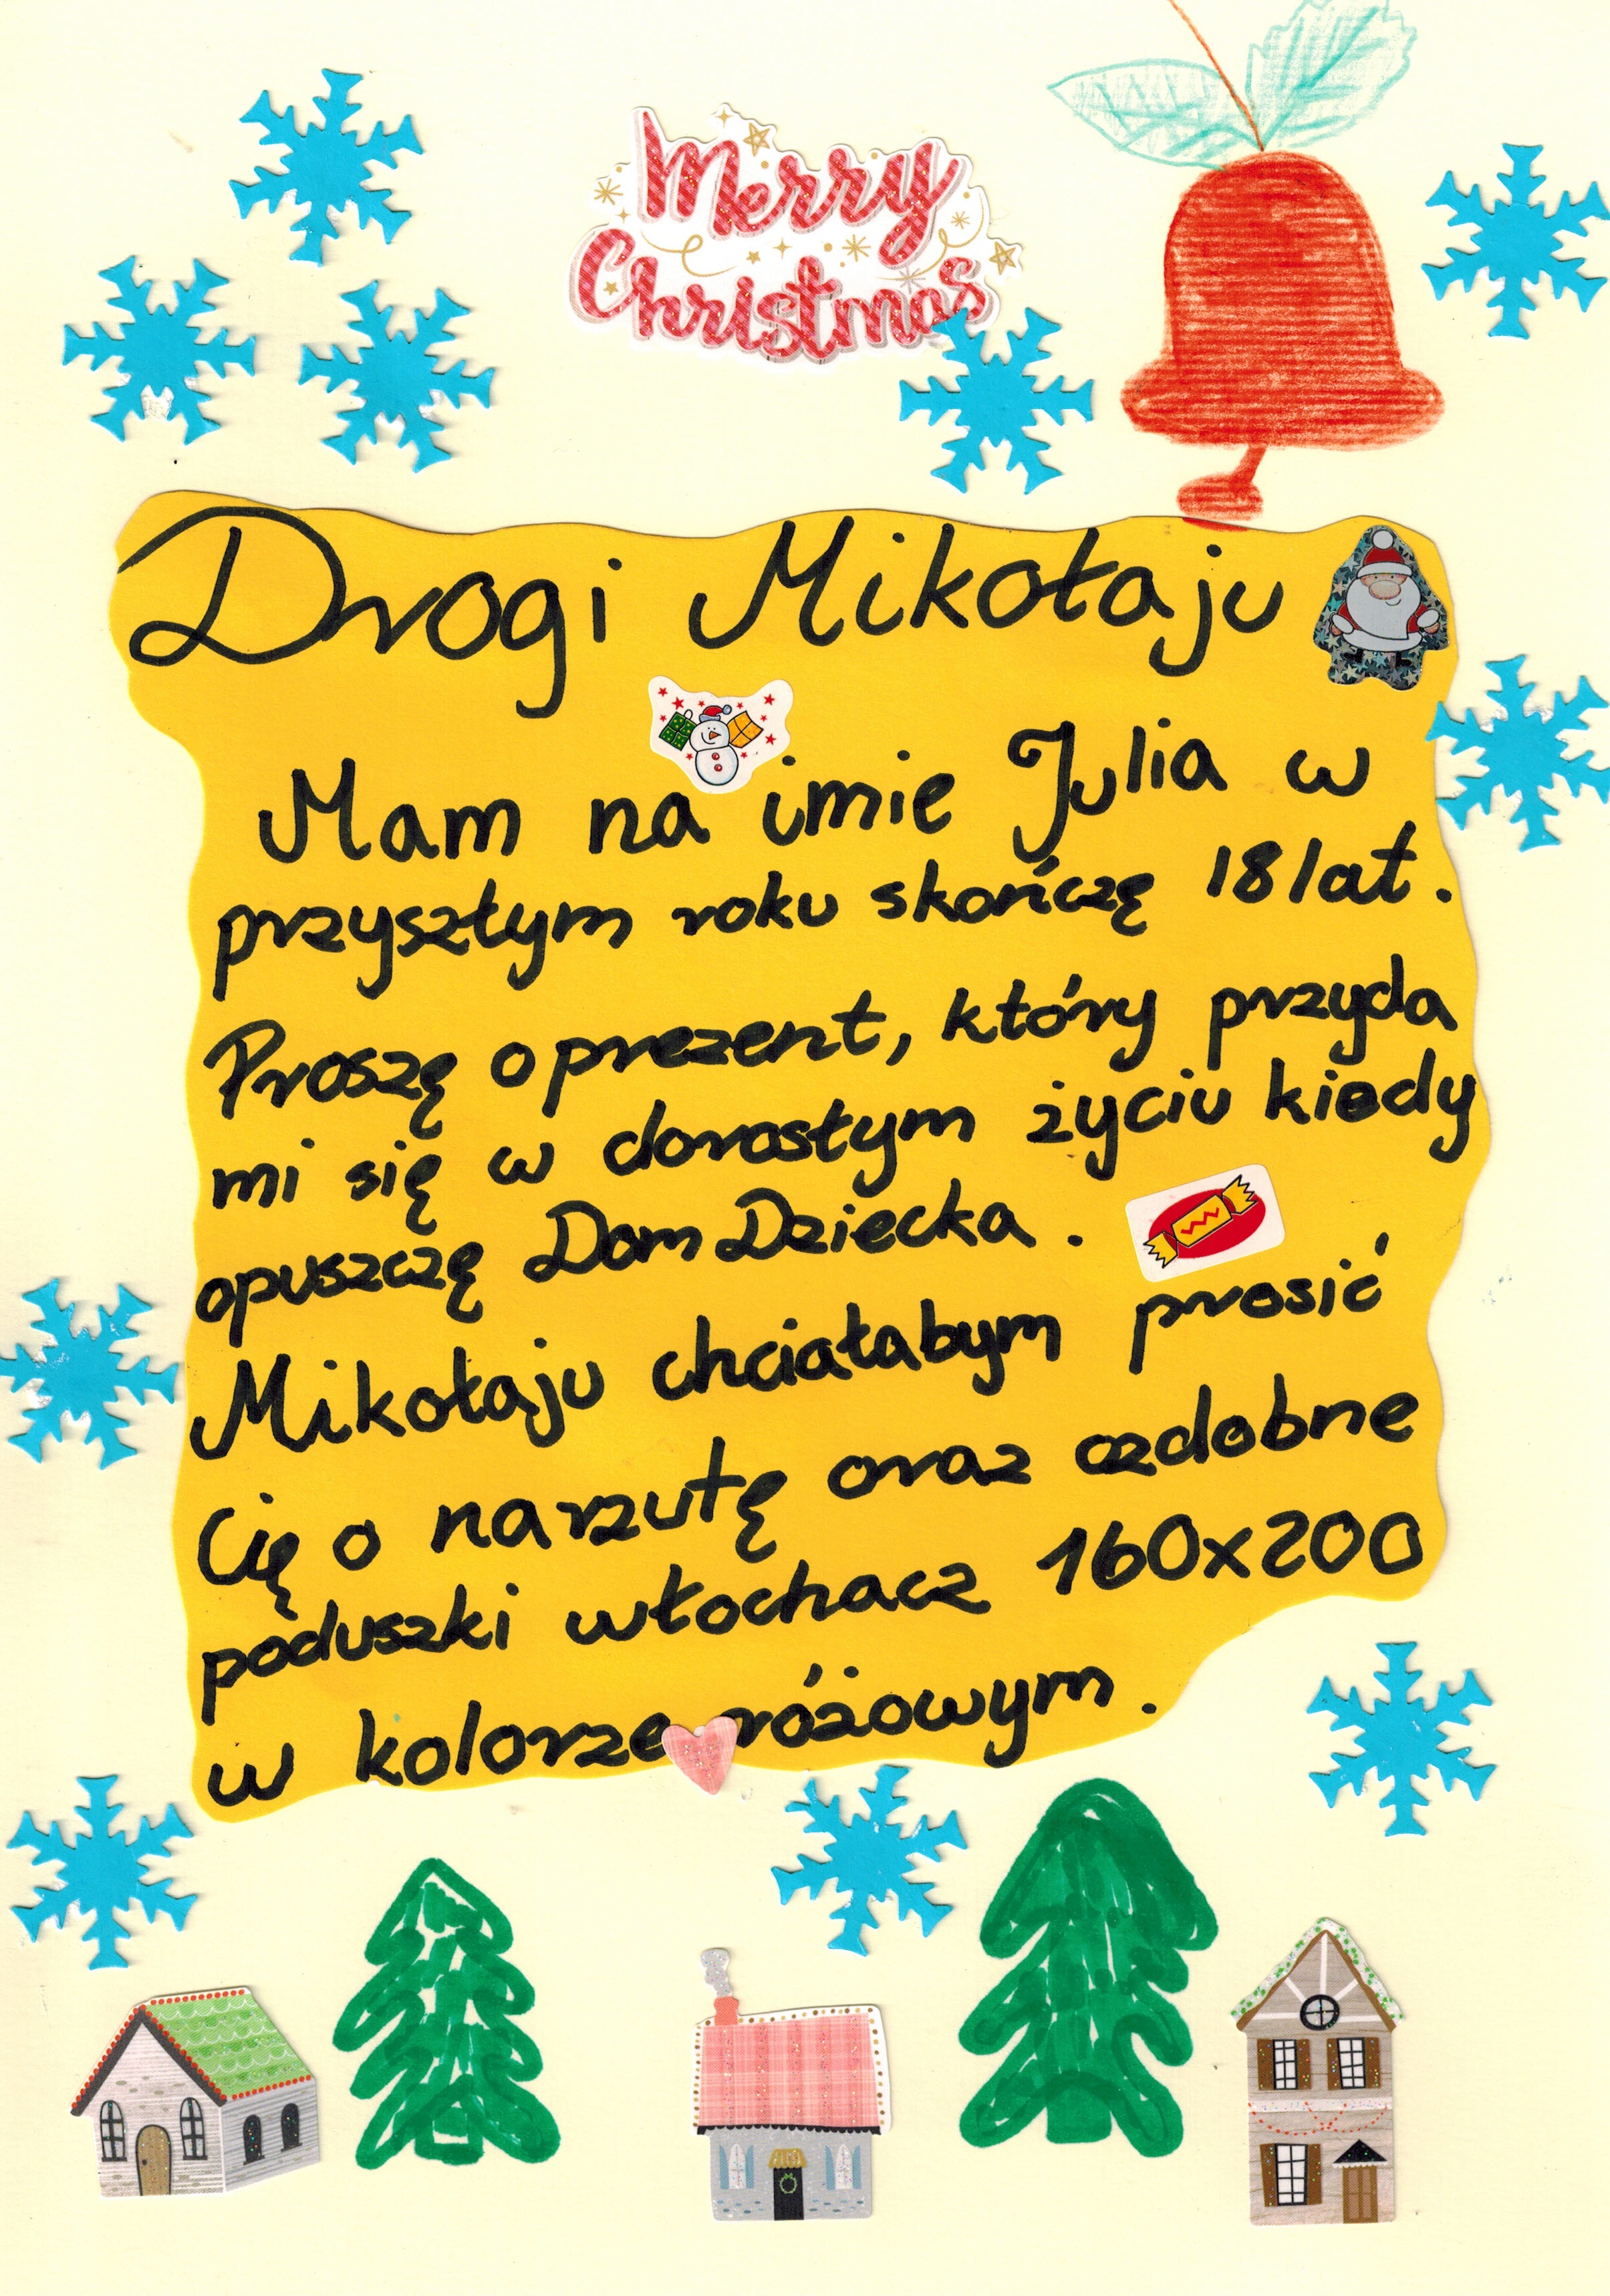 Merry
Christmas
Drogi Mikołaju
Mam na imię Julia w
przyszłym roku skończę 18 lat.
Proszę o prezent, który przyda
mi się w dorosłym życiu kiedy
opuszczę Dom Dziecka.
Mikołaju chciałabym prosić
Cię o narzutę oraz ozdobne
poduszki włochacz 160x200
w kolorze różowym.